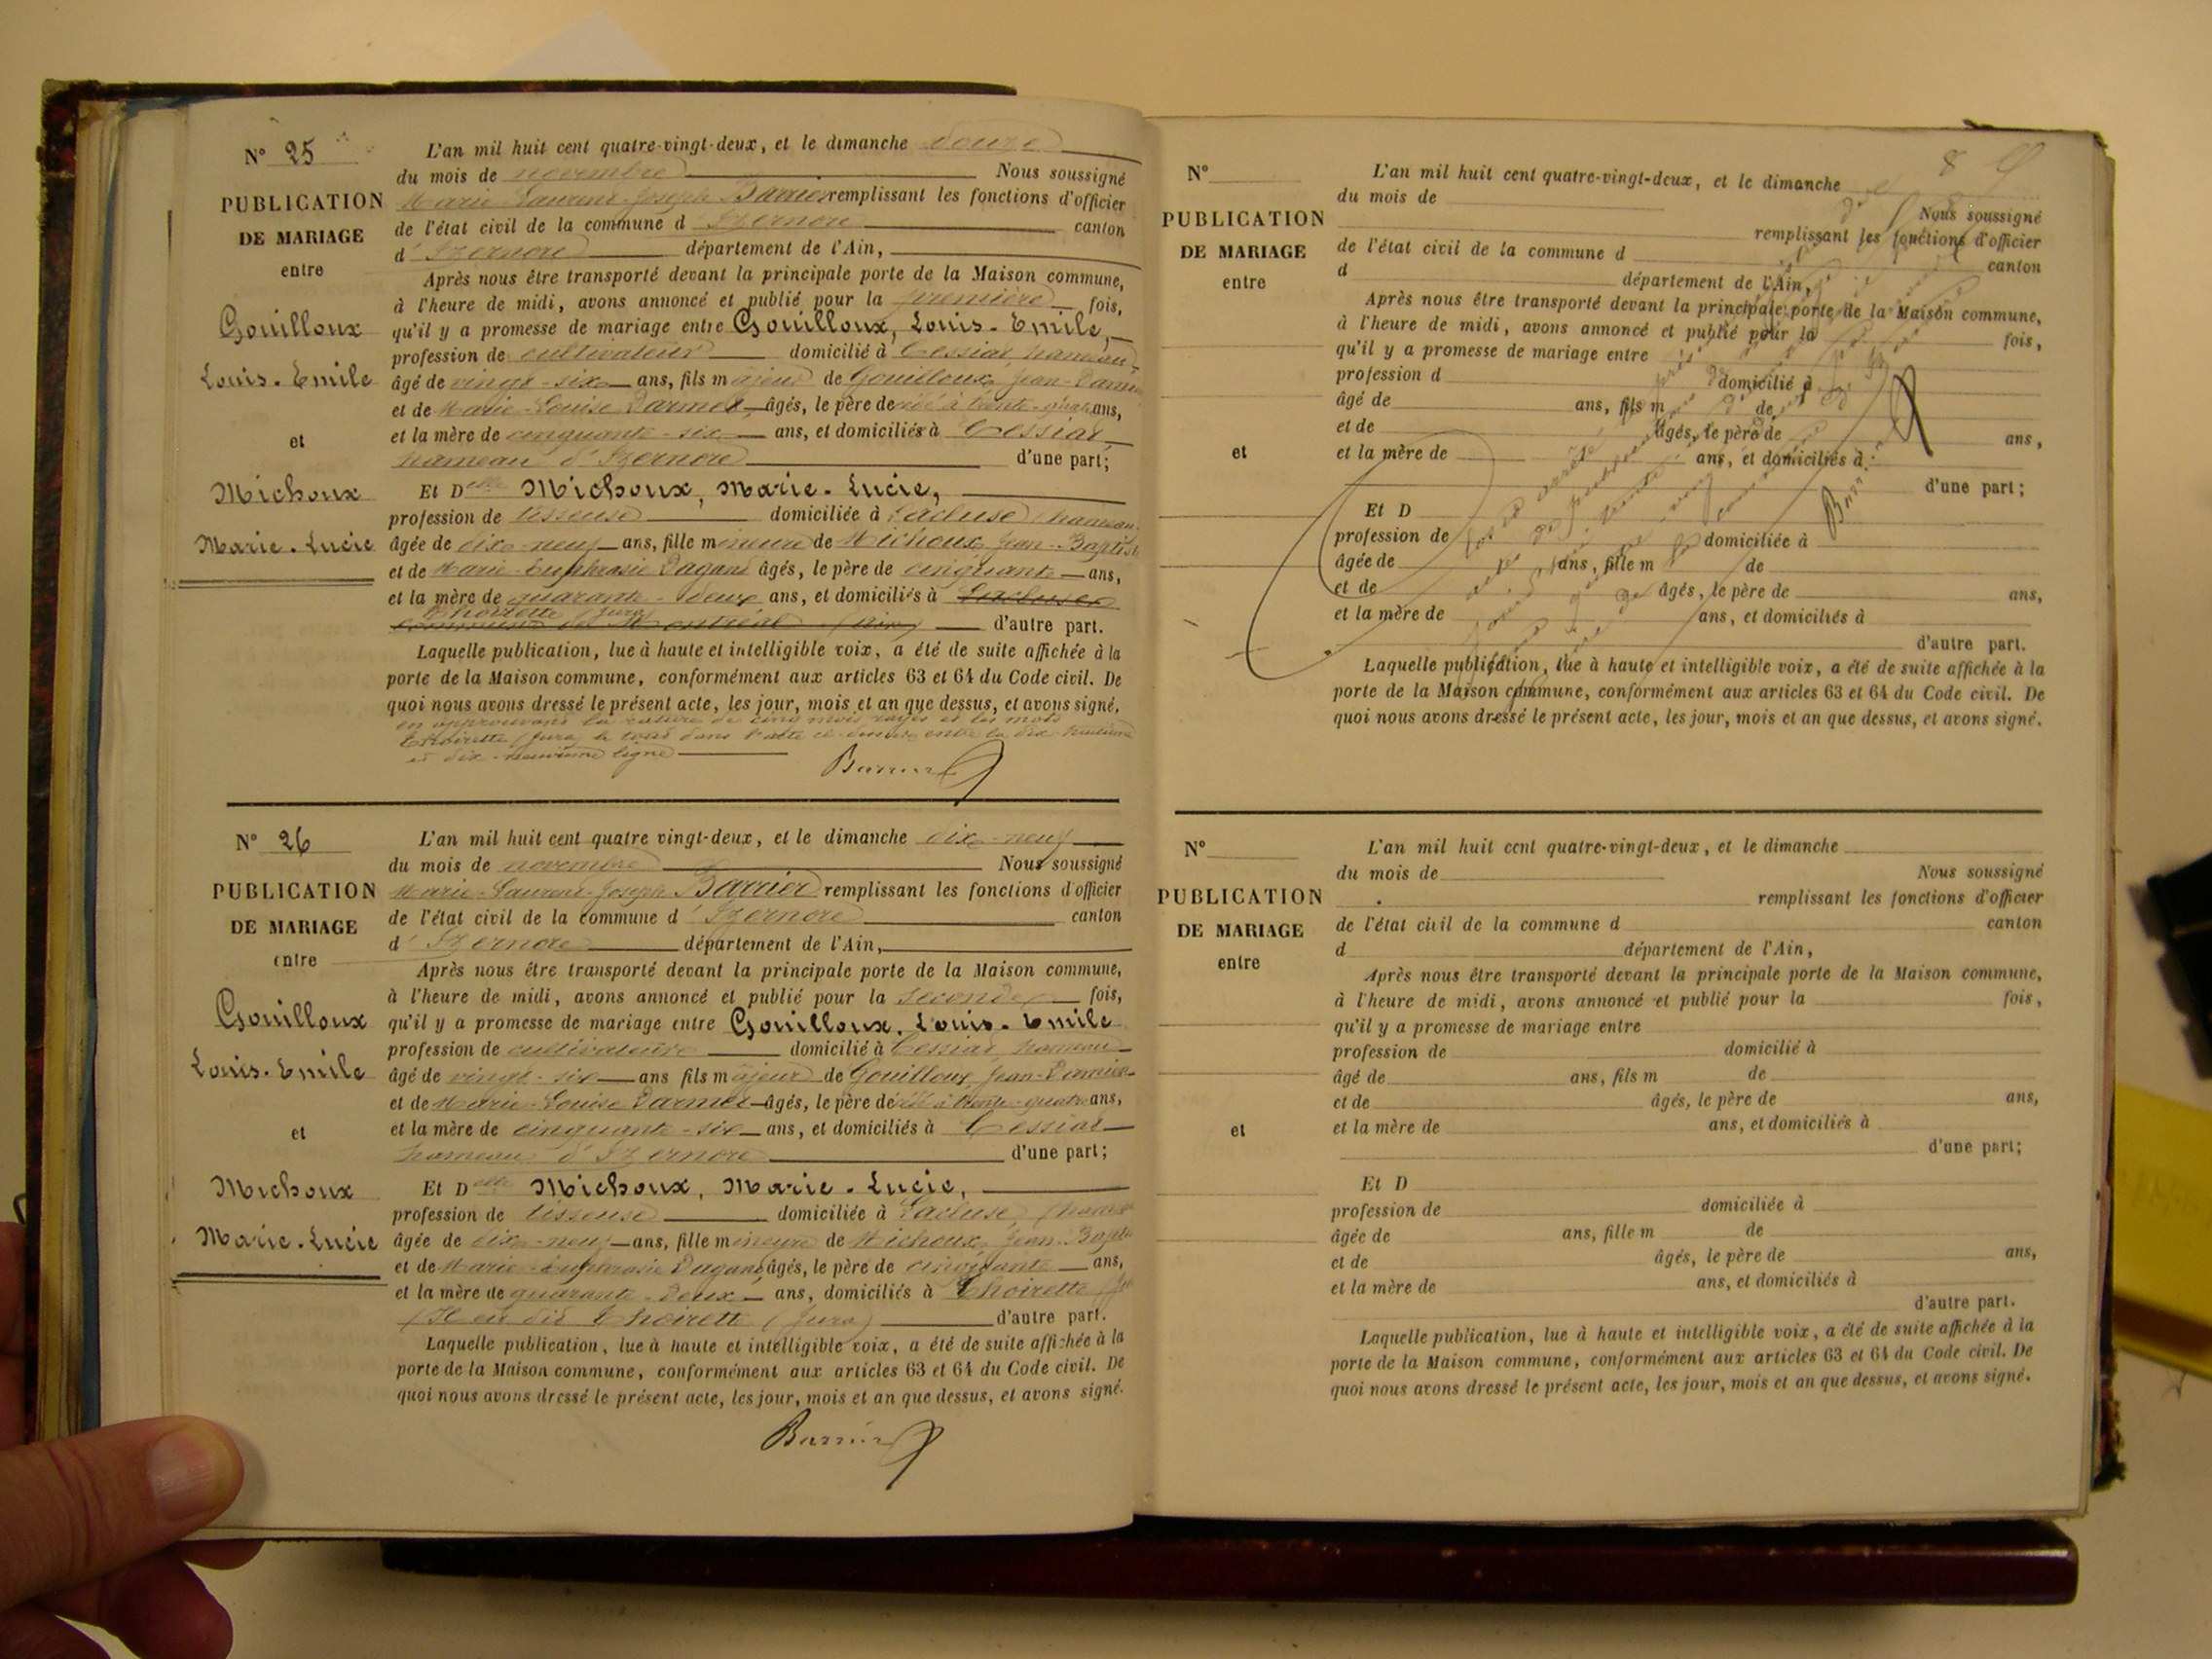 N° 25
PUBLICATION
DE MARIAGE
entre
Gouilloux
Louis-Emile
et
Michoux
Marie-Lucie
L'an mil huit cent quatre-vingt-deux, et le dimanche douze
du mois de novembre Nous soussigné
Marie Laurent Joseph Barrier remplissant les fonctions d'officier
de l'état civil de la commune d'Izernore canton
d'Izernore département de l'Ain,
Après nous être transporté devant la principale porte de la Maison commune,
à l'heure de midi, avons annoncé et publié pour la première fois,
qu'il y a promesse de mariage entre Gouilloux, Louis-Emile,
profession de cultivateur domicilié à Cessiat, hameau
âgé de vingt-six ans, fils majeur de Gouilloux Jean-Damien
et de Marie-Louise Darmet âgés, le père de à trente-quatre ans,
et la mère de cinquante-six ans, et domiciliés à Cessiat
hameau d'Izernore d'une part;
Et Delle Michoux, Marie-Lucie,
profession de tisseuse domiciliée à Lacluse, hameau
âgée de dix-neuf ans, fille mineure de Michoux, Jean-Baptiste
et de Marie-Euphrasie Dagand âgés, le père de cinquante ans,
et la mère de quarante-deux ans, et domiciliés à Lacluse
Thoirette (Jura)
d'autre part.
Laquelle publication, lue à haute et intelligible voix, a été de suite affichée à la
porte de la Maison commune, conformément aux articles 63 et 64 du Code civil. De
quoi nous avons dressé le présent acte, les jour, mois et an que dessus, et avons signé,
en approuvant la rature de cinq mots rayés et les mots
Thoirette (Jura) le tout dans l'acte ci-dessus entre la dix-huitième
et dix-neuvième ligne
Barrier
N° 26
PUBLICATION
DE MARIAGE
entre
Gouilloux
Louis-Emile
et
Michoux
Marie-Lucie
L'an mil huit cent quatre vingt-deux, et le dimanche dix-neuf
du mois de novembre Nous soussigné
Marie-Laurent-Joseph Barrier remplissant les fonctions d'officier
de l'état civil de la commune d'Izernore canton
d'Izernore département de l'Ain,
Après nous être transporté devant la principale porte de la Maison commune,
à l'heure de midi, avons annoncé et publié pour la seconde fois,
qu'il y a promesse de mariage entre Gouilloux, Louis-Emile
profession de cultivateur domicilié à Cessiat, hameau
âgé de vingt-six ans fils majeur de Gouilloux Jean-Damien
et de Marie-Louise Darmet âgés, le père de à trente-quatre ans,
et la mère de cinquante-six ans, et domiciliés à Cessiat
hameau d'Izernore d'une part;
Et Delle Michoux, Marie-Lucie,
profession de tisseuse domiciliée à Lacluse, (hameau
âgée de dix-neuf ans, fille mineure de Michoux, Jean-Bapte
et de Marie-Euphrasie Dagand âgés, le père de cinquante ans,
et la mère de quarante-deux ans, domiciliés à Thoirette
Thoirette (Jura) d'autre part.
Laquelle publication, lue à haute et intelligible voix, a été de suite affichée à la
porte de la Maison commune, conformément aux articles 63 et 64 du Code civil. De
quoi nous avons dressé le présent acte, les jour, mois et an que dessus, et avons signé.
Barrier
8
N°
PUBLICATION
DE MARIAGE
entre
et
L'an mil huit cent quatre-vingt-deux, et le dimanche
du mois de Nous soussigné
remplissant les fonctions d'officier
de l'état civil de la commune d canton
d département de l'Ain,
Après nous être transporté devant la principale porte de la Maison commune,
à l'heure de midi, avons annoncé et publié pour la fois,
qu'il y a promesse de mariage entre
profession d domicilié à
âgé de ans, fils m de
et de âgés, le père de ans,
et la mère de ans, et domiciliés à
d'une part;
Et D
profession de domiciliée à
âgée de ans, fille m de
et de âgés, le père de ans,
et la mère de ans, et domiciliés à
d'autre part.
Laquelle publication, lue à haute et intelligible voix, a été de suite affichée à la
porte de la Maison commune, conformément aux articles 63 et 64 du Code civil. De
quoi nous avons dressé le présent acte, les jour, mois et an que dessus, et avons signé.
N°
PUBLICATION
DE MARIAGE
entre
et
L'an mil huit cent quatre-vingt-deux, et le dimanche
du mois de Nous soussigné
remplissant les fonctions d'officier
de l'état civil de la commune d canton
d département de l'Ain,
Après nous être transporté devant la principale porte de la Maison commune,
à l'heure de midi, avons annoncé et publié pour la fois,
qu'il y a promesse de mariage entre
profession de domicilié à
âgé de ans, fils m de
et de âgés, le père de ans,
et la mère de ans, et domiciliés à
d'une part;
Et D
profession de domiciliée à
âgée de ans, fille m de
et de âgés, le père de ans,
et la mère de ans, et domiciliés à
d'autre part.
Laquelle publication, lue à haute et intelligible voix, a été de suite affichée à la
porte de la Maison commune, conformément aux articles 63 et 64 du Code civil. De
quoi nous avons dressé le présent acte, les jour, mois et an que dessus, et avons signé.